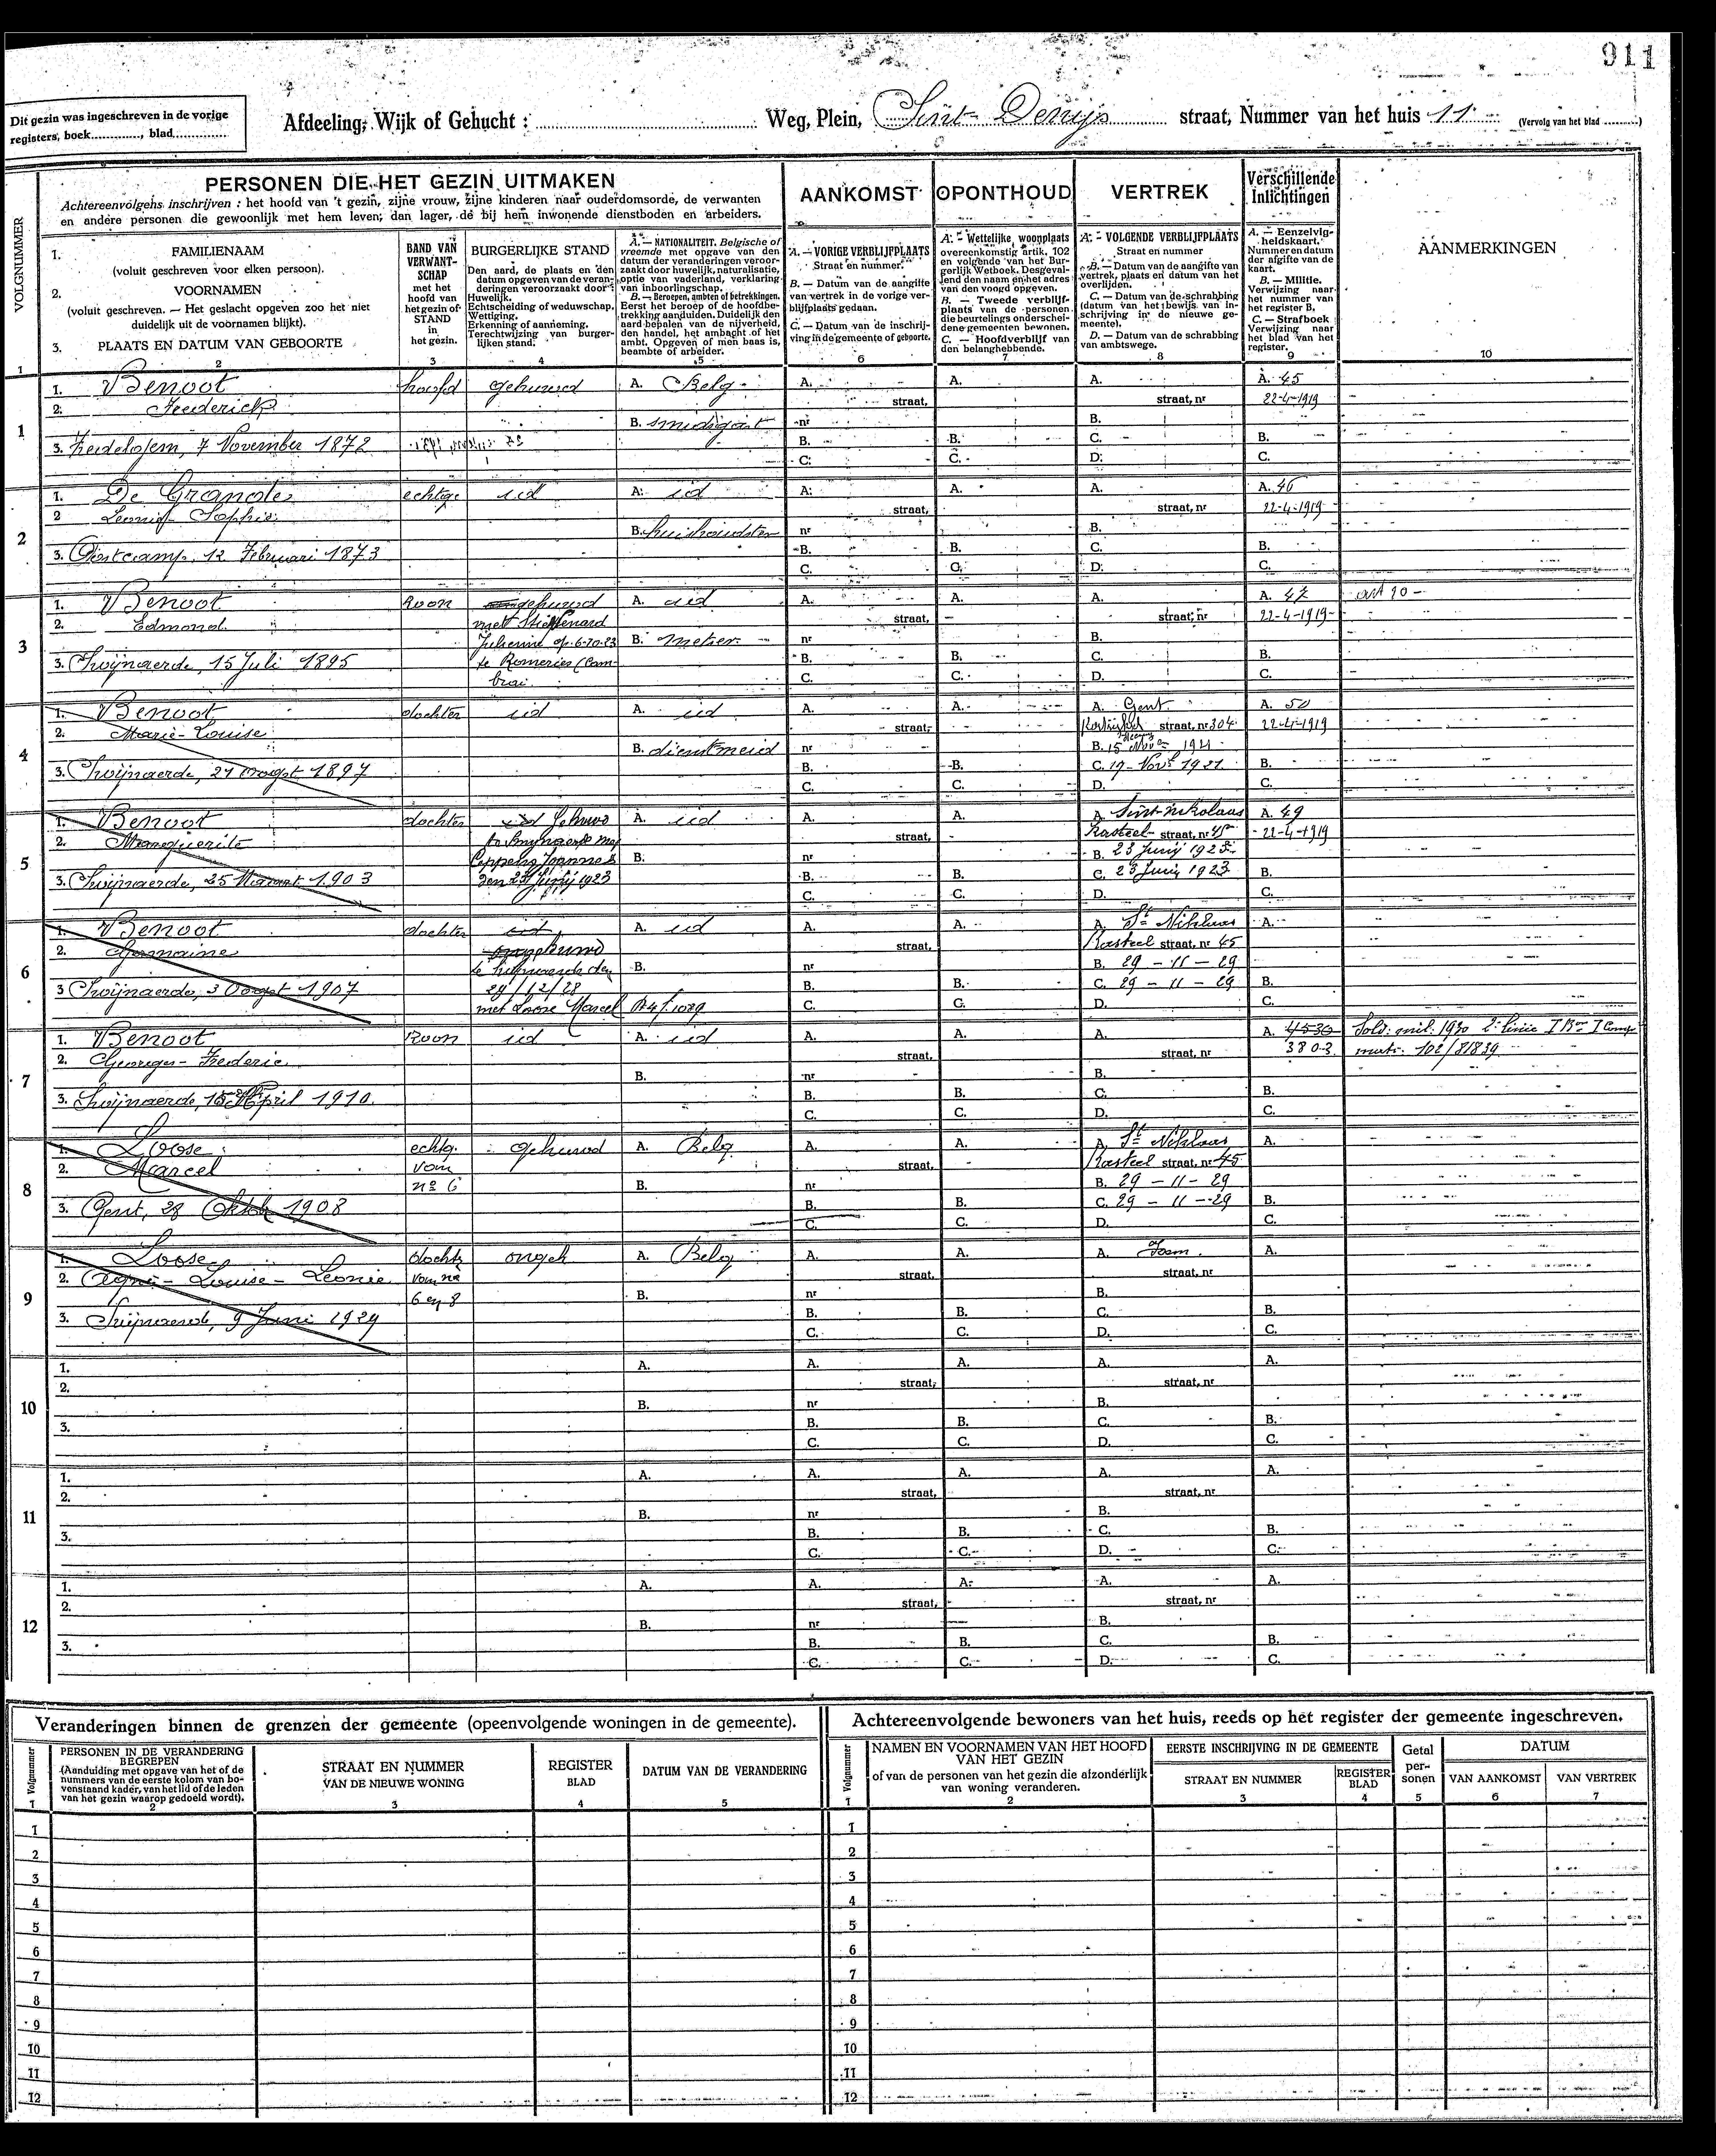 911
Dit gezin was ingeschreven in de vorige
registers, boek............, blad..............
Afdeeling, Wijk of Gehucht : ........ Weg, Plein, Sint-Denijs straat, Nummer van het huis 11 (Vervolg van het blad .........)
VOLGNUMMER
PERSONEN DIE HET GEZIN UITMAKEN
Achtereenvolgens inschrijven : het hoofd van 't gezin, zijne vrouw, zijne kinderen naar ouderdomsorde, de verwanten
en andere personen die gewoonlijk met hem leven; dan lager, de bij hem inwonende dienstboden en arbeiders.
1. FAMILIENAAM
(voluit geschreven voor elken persoon).
2. VOORNAMEN
(voluit geschreven. — Het geslacht opgeven zoo het niet
duidelijk uit de voornamen blijkt).
3. PLAATS EN DATUM VAN GEBOORTE
BAND VAN
VERWANT-
SCHAP
met het
hoofd van
het gezin of
STAND
in
het gezin.
BURGERLIJKE STAND
Den aard, de plaats en den
datum opgeven van de veran-
deringen veroorzaakt door :
Huwelijk.
Echtscheiding of weduwschap.
Wettiging.
Erkenning of aanneming.
Terechtwijzing van burger-
lijken stand.
A. — NATIONALITEIT. Belgische of
vreemde met opgave van den
datum der veranderingen veroor-
zaakt door huwelijk, naturalisatie,
optie van vaderland, verklaring
van inboorlingschap.
B. — Beroepen, ambten of betrekkingen.
Eerst het beroep of de hoofdbe-
trekking aanduiden. Duidelijk den
aard bepalen van de nijverheid,
den handel, het ambacht of het
ambt. Opgeven of men baas is,
beambte of arbeider.
AANKOMST
A. — VORIGE VERBLIJFPLAATS
Straat en nummer.
B. — Datum van de aangifte
van vertrek in de vorige ver-
blijfplaats gedaan.
C. — Datum van de inschrij-
ving in de gemeente of geboorte.
OPONTHOUD
A. - Wettelijke woonplaats
overeenkomstig artik. 102
en volgende van het Bur-
gerlijk Wetboek. Desgeval-
lend den naam en het adres
van den voogd opgeven.
B. — Tweede verblijf-
plaats van de personen
die beurtelings onderschei-
dene gemeenten bewonen.
C. — Hoofdverblijf van
den belanghebbende.
VERTREK
A. - VOLGENDE VERBLIJFPLAATS
Straat en nummer
B. — Datum van de aangifte van
vertrek, plaats en datum van het
overlijden.
C. — Datum van de schrabbing
(datum van het bewijs van in-
schrijving in de nieuwe ge-
meente).
D. — Datum van de schrabbing
van ambtswege.
Verschillende
Inlichtingen
A. — Eenzelvig-
heidskaart.
Nummer en datum
der afgifte van de
kaart.
B. — Militie.
Verwijzing naar
het nummer van
het register B.
C. — Strafboek
Verwijzing naar
het blad van het
register.
AANMERKINGEN
1 2 3 4 5 6 7 8 9 10
1
1. Benoot hoofd gehuwd A. Belg A. A. A. A. 45
2. Frederick straat, straat, nr 22-4-1919
B. smidgast nr B.
3. Zeedelgem, 7 November 1872 B. B. C. B.
C. C. D. C.
2
1. De Grande echtge id A. id A. A. A. A. 46
2 Leonie Sophie straat, straat, nr 22-4-1919
B. huishoudster nr B.
3. Oostcamp, 12 Februari 1873 B. B. C. B.
C. C. D. C.
3
1. Benoot Zoon gehuwd A. id A. A. A. A. 47
2. Edmond met straat, straat, nr 22-4-1919
op 6-10-23 B. metser nr B.
3. Swijnaerde, 15 Juli 1895 te Romeries (Cam- B. B. C. B.
brai C. C. D. C.
4
1. Benoot dochter id A. id A. A. A. Gent A. 50
2. Marie-Louise straat, straat, nr 304 22-4-1919
B. dienstmeid nr B. 15 1921
3. Swijnaerde, 27 Oogst 1897 B. B. C. 19 Nov 1921 B.
C. C. D. C.
5
1. Benoot dochter id Gehuwd A. id A. A. A. Sint-Nikolaas A. 49
2. Marguerite te Swynaerde met straat, Kasteel straat, nr 45 22-4-1919
Joannes B. nr B. 23 Junij 1923
3. Swijnaerde, 25 Maart 1903 den 23 Junij 1923 B. B. C. 23 Junij 1923 B.
C. C. D. C.
6
1. Benoot dochter id A. id A. A. A. St Niklaas A.
2. Germaine straat, Kasteel straat, nr 45
te Swijnaerde den B. nr B. 29 - 11 - 29
3 Swijnaerde, 3 Oogst 1907 29/12/28 B. B. C. 29 - 11 - 29 B.
met Loose Marcel C. C. D. C.
7
1. Benoot Zoon id A. id A. A. A. A. 4530 Sold. mil. 1930 2e linie I Bon I Comp
2. Georges-Frederic straat, straat, nr 3803 matr. 102/81839
B. nr B.
3. Swijnaerde, 15 April 1910. B. B. C. B.
C. C. D. C.
8
1. Loose echtg. gehuwd A. Belg A. A. A. St Niklaas A.
2. Marcel van straat, Kasteel straat, nr 45
no 6 B. nr B. 29 - 11 - 29
3. Gent, 28 Oktob 1908 B. B. C. 29 - 11 - 29 B.
C. C. D. C.
9
1. Loose dochtr ongeh A. Belg A. A. A. A.
2. Louise - Leonie van no straat, straat, nr
6 en 8 B. nr B.
3. Swijnaerde, 9 Juni 1929 B. B. C. B.
C. C. D. C.
10
1. A. A. A. A. A.
2. straat, straat, nr
B. nr B.
3. B. B. C. B.
C. C. D. C.
11
1. A. A. A. A. A.
2. straat, straat, nr
B. nr B.
3. B. B. C. B.
C. C. D. C.
12
1. A. A. A. A. A.
2. straat, straat, nr
B. nr B.
3. B. B. C. B.
C. C. D. C.
Veranderingen binnen de grenzen der gemeente (opeenvolgende woningen in de gemeente).
Volgnummer
PERSONEN IN DE VERANDERING
BEGREPEN
(Aanduiding met opgave van het of de
nummers van de eerste kolom van bo-
venstaand kader, van het lid of de leden
van het gezin waarop gedoeld wordt).
STRAAT EN NUMMER
VAN DE NIEUWE WONING
REGISTER
BLAD
DATUM VAN DE VERANDERING
1 2 3 4 5
1
2
3
4
5
6
7
8
9
10
11
12
Achtereenvolgende bewoners van het huis, reeds op het register der gemeente ingeschreven.
Volgnummer
NAMEN EN VOORNAMEN VAN HET HOOFD
VAN HET GEZIN
of van de personen van het gezin die afzonderlijk
van woning veranderen.
EERSTE INSCHRIJVING IN DE GEMEENTE
STRAAT EN NUMMER
REGISTER
BLAD
Getal
per-
sonen
DATUM
VAN AANKOMST
VAN VERTREK
1 2 3 4 5 6 7
1
2
3
4
5
6
7
8
9
10
11
12